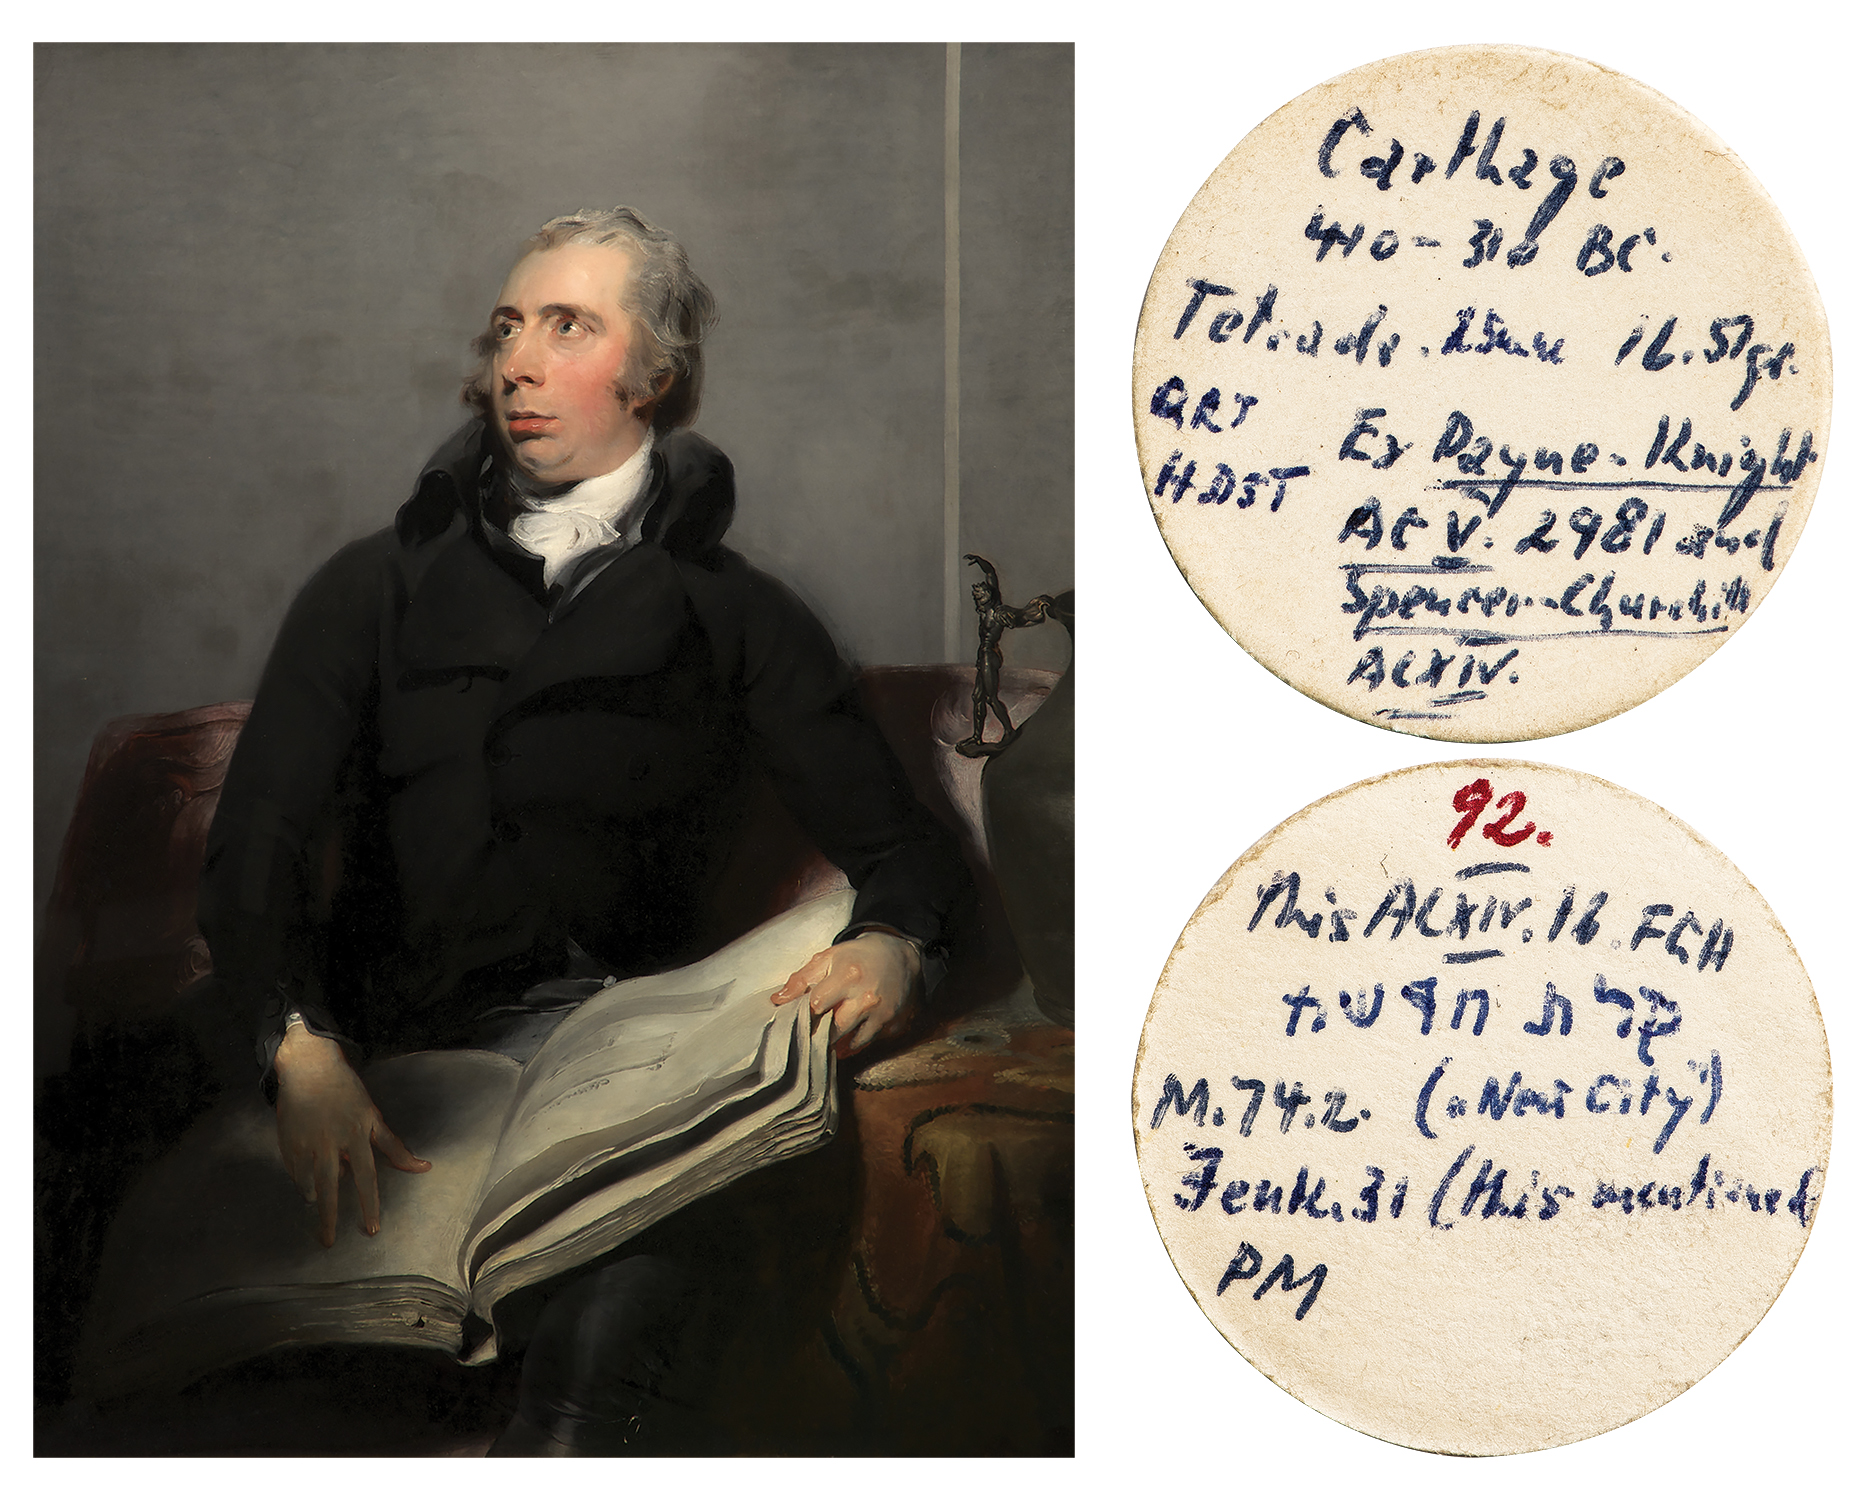 Carthage
410-310 BC.
Tetradr. 25mm 16.51gr.
ART
HDST
Ex Payne-Knight
AC V. 2981 and
Spencer-Churchill
ACXIV.
92.
This ACXIV.16. FCH
קרת חדשת
M.74.2. („New City")
Jenk.31 (this mentioned
PM